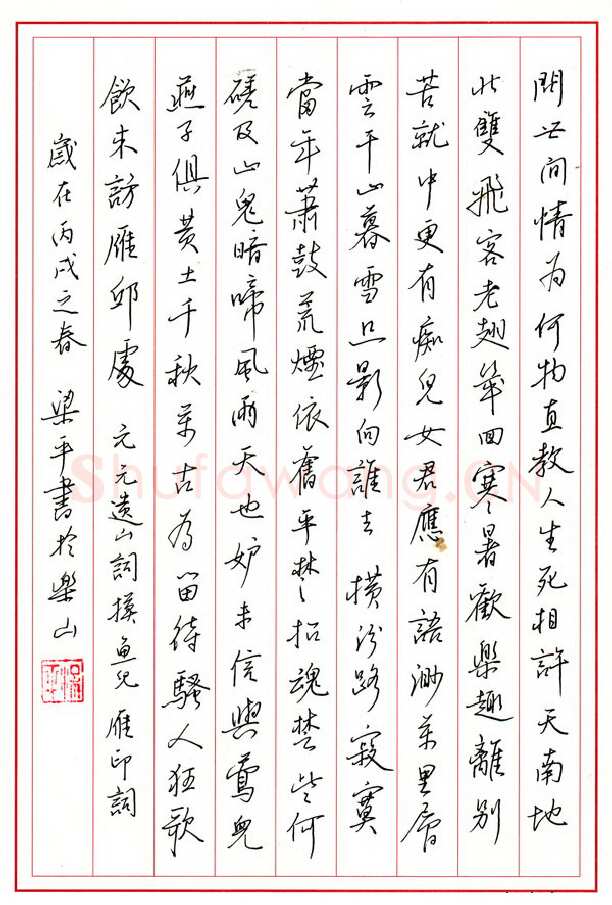 問世間情為何物直教人生死相許天南地
北雙飛客老翅幾回寒暑歡樂趣離別
苦就中更有痴兒女君應有語渺萬里層
雲千山暮雪只影向誰去 橫汾路寂寞
當年蕭鼓荒煙依舊平楚招魂楚些何
嗟及山鬼暗啼風雨天也妒未信與鶯兒
燕子俱黃土千秋萬古為留待騷人狂歌
飲來訪雁邱處 元元遺山詞摸魚兒 雁印詞
歲在丙戌之春 梁平書於樂山
Shufawang.CN